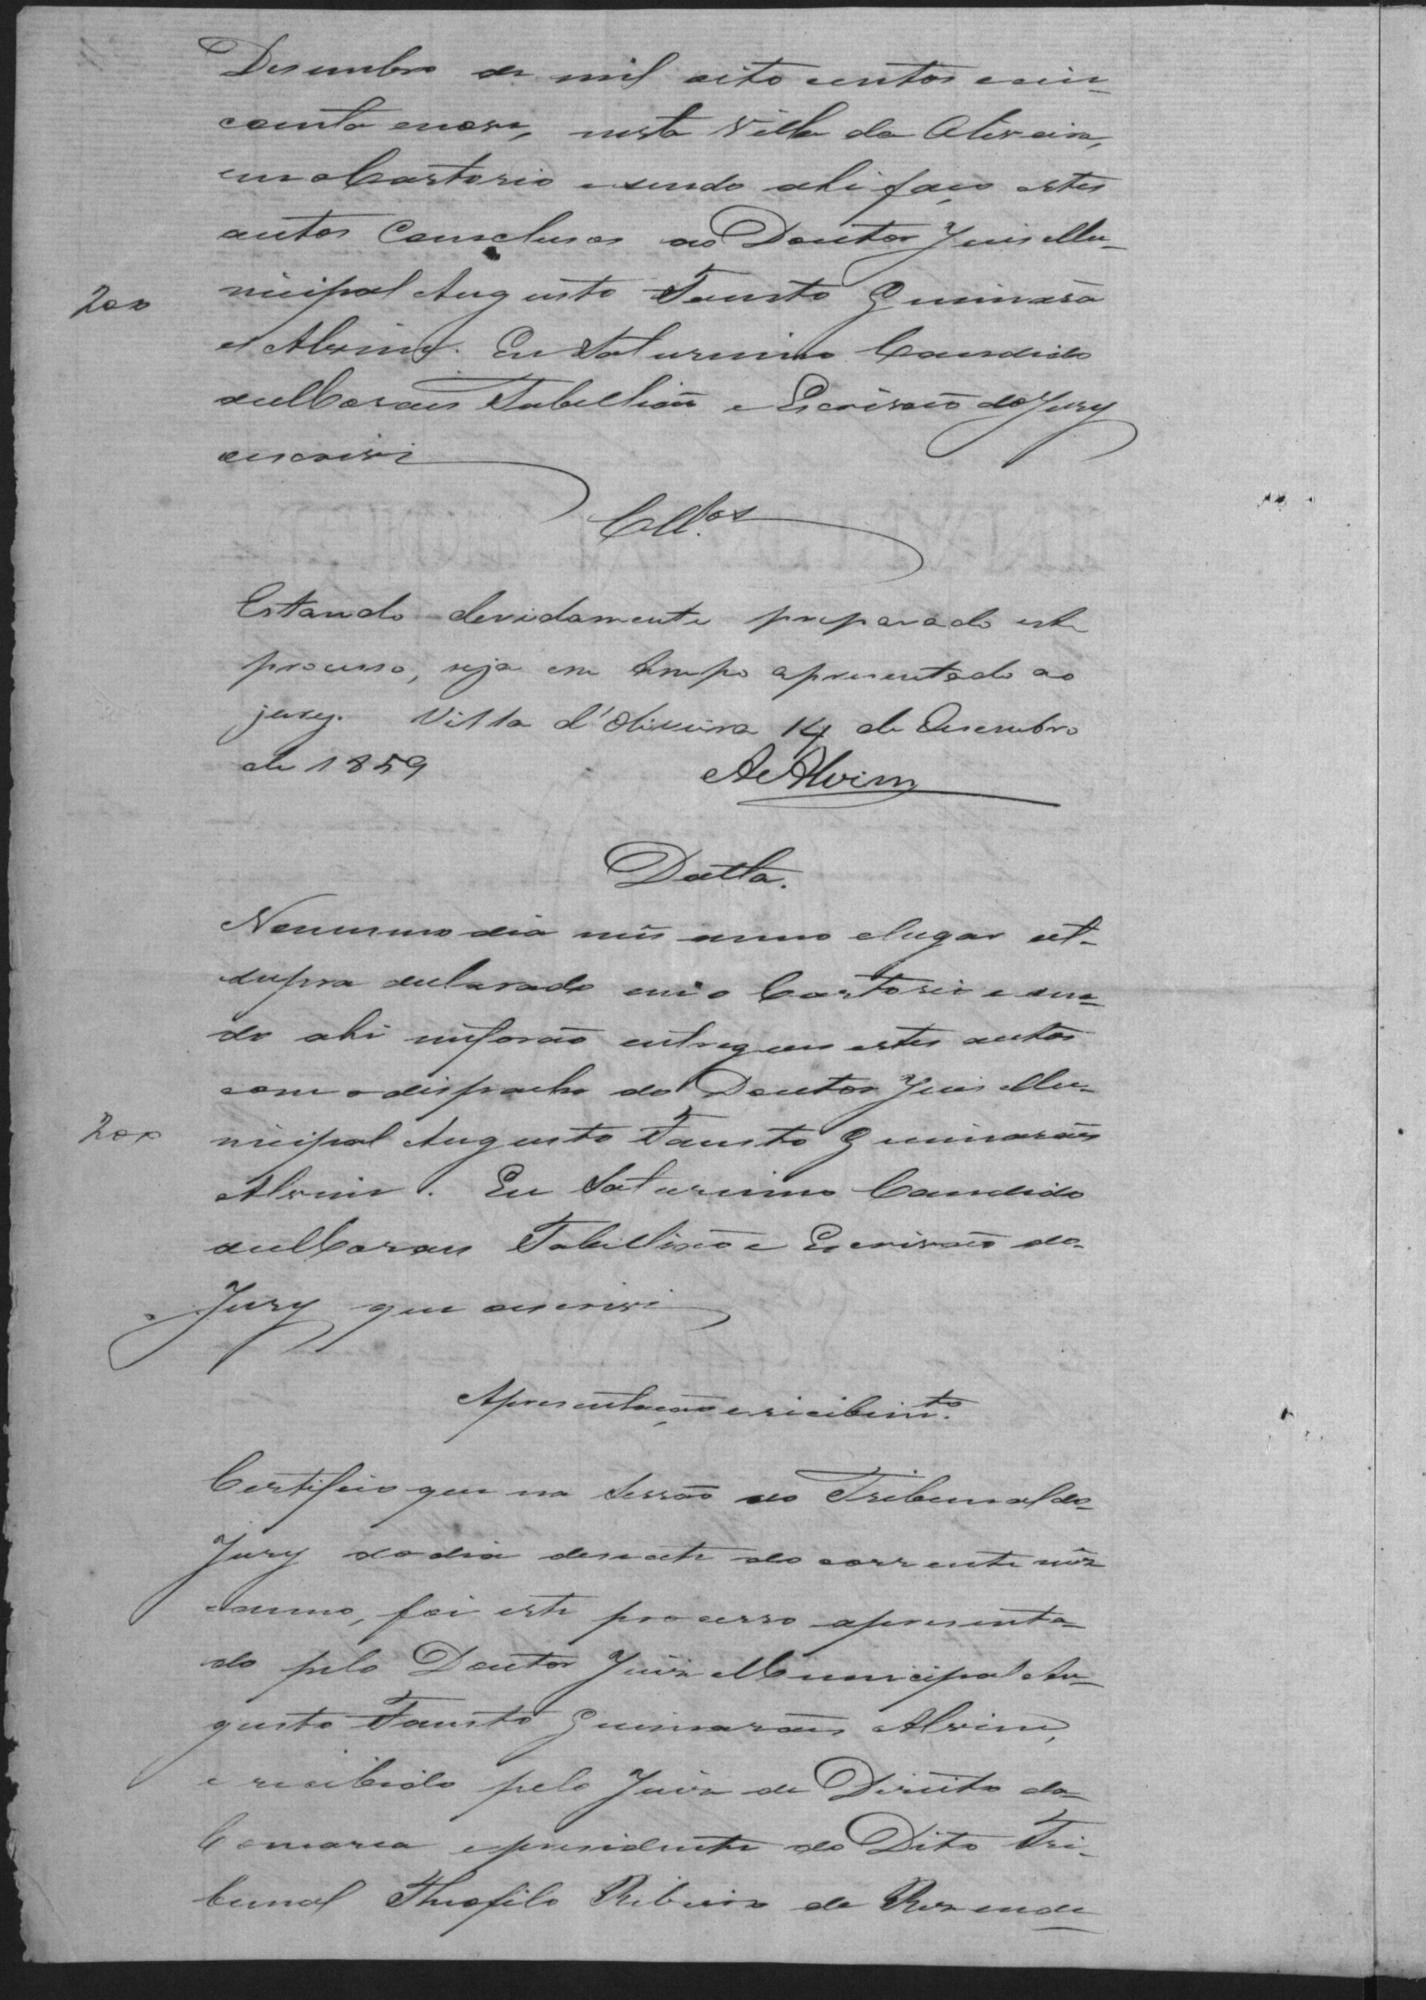 Desembro de mil oito centos e cin=
coenta enove, nesta Villa da Oliveira,
em o Cartorio e sendo ahi faço estes
autos Conclusos ao Doutor Juis Mu=
200
nicipal Augusto Fausto Guimarão
e Alvim. Eu Saturnino Candido
de Moraes Tabellião e Escrivão do Jury
escrivi
Cll.os
Estando devidamente preparado este
processo, seja em tempo apresentado ao
jury. Villa d'Oliveira 14 de Desembro
de 1859
A e Alvim
Datta.
No mesmo dia mes anno e lugar ut=
supra declarado em o Cartorio e sen=
do ahi me forão entregues estes autos
com o dispacho do Doutor Juis Mu=
200
nicipal Augusto Fausto Guimarães
Alvim. Eu Saturnino Candido
de Moraes Tabellião e Escrivão do=
Jury que escrivi
Apresentação e recibim.to
Certifico que na Sessão do Tribunal do=
Jury do dia desesete do corrente mez
e anno, foi este processo apresenta=
do pelo Doutor Juiz Municipal Au=
gusto Fausto Guimarães Alvim,
e recibido pelo Juiz de Direito da=
Comarca e presidente do Dito Tri=
bunal Theofilo Ribeiro de Rezende